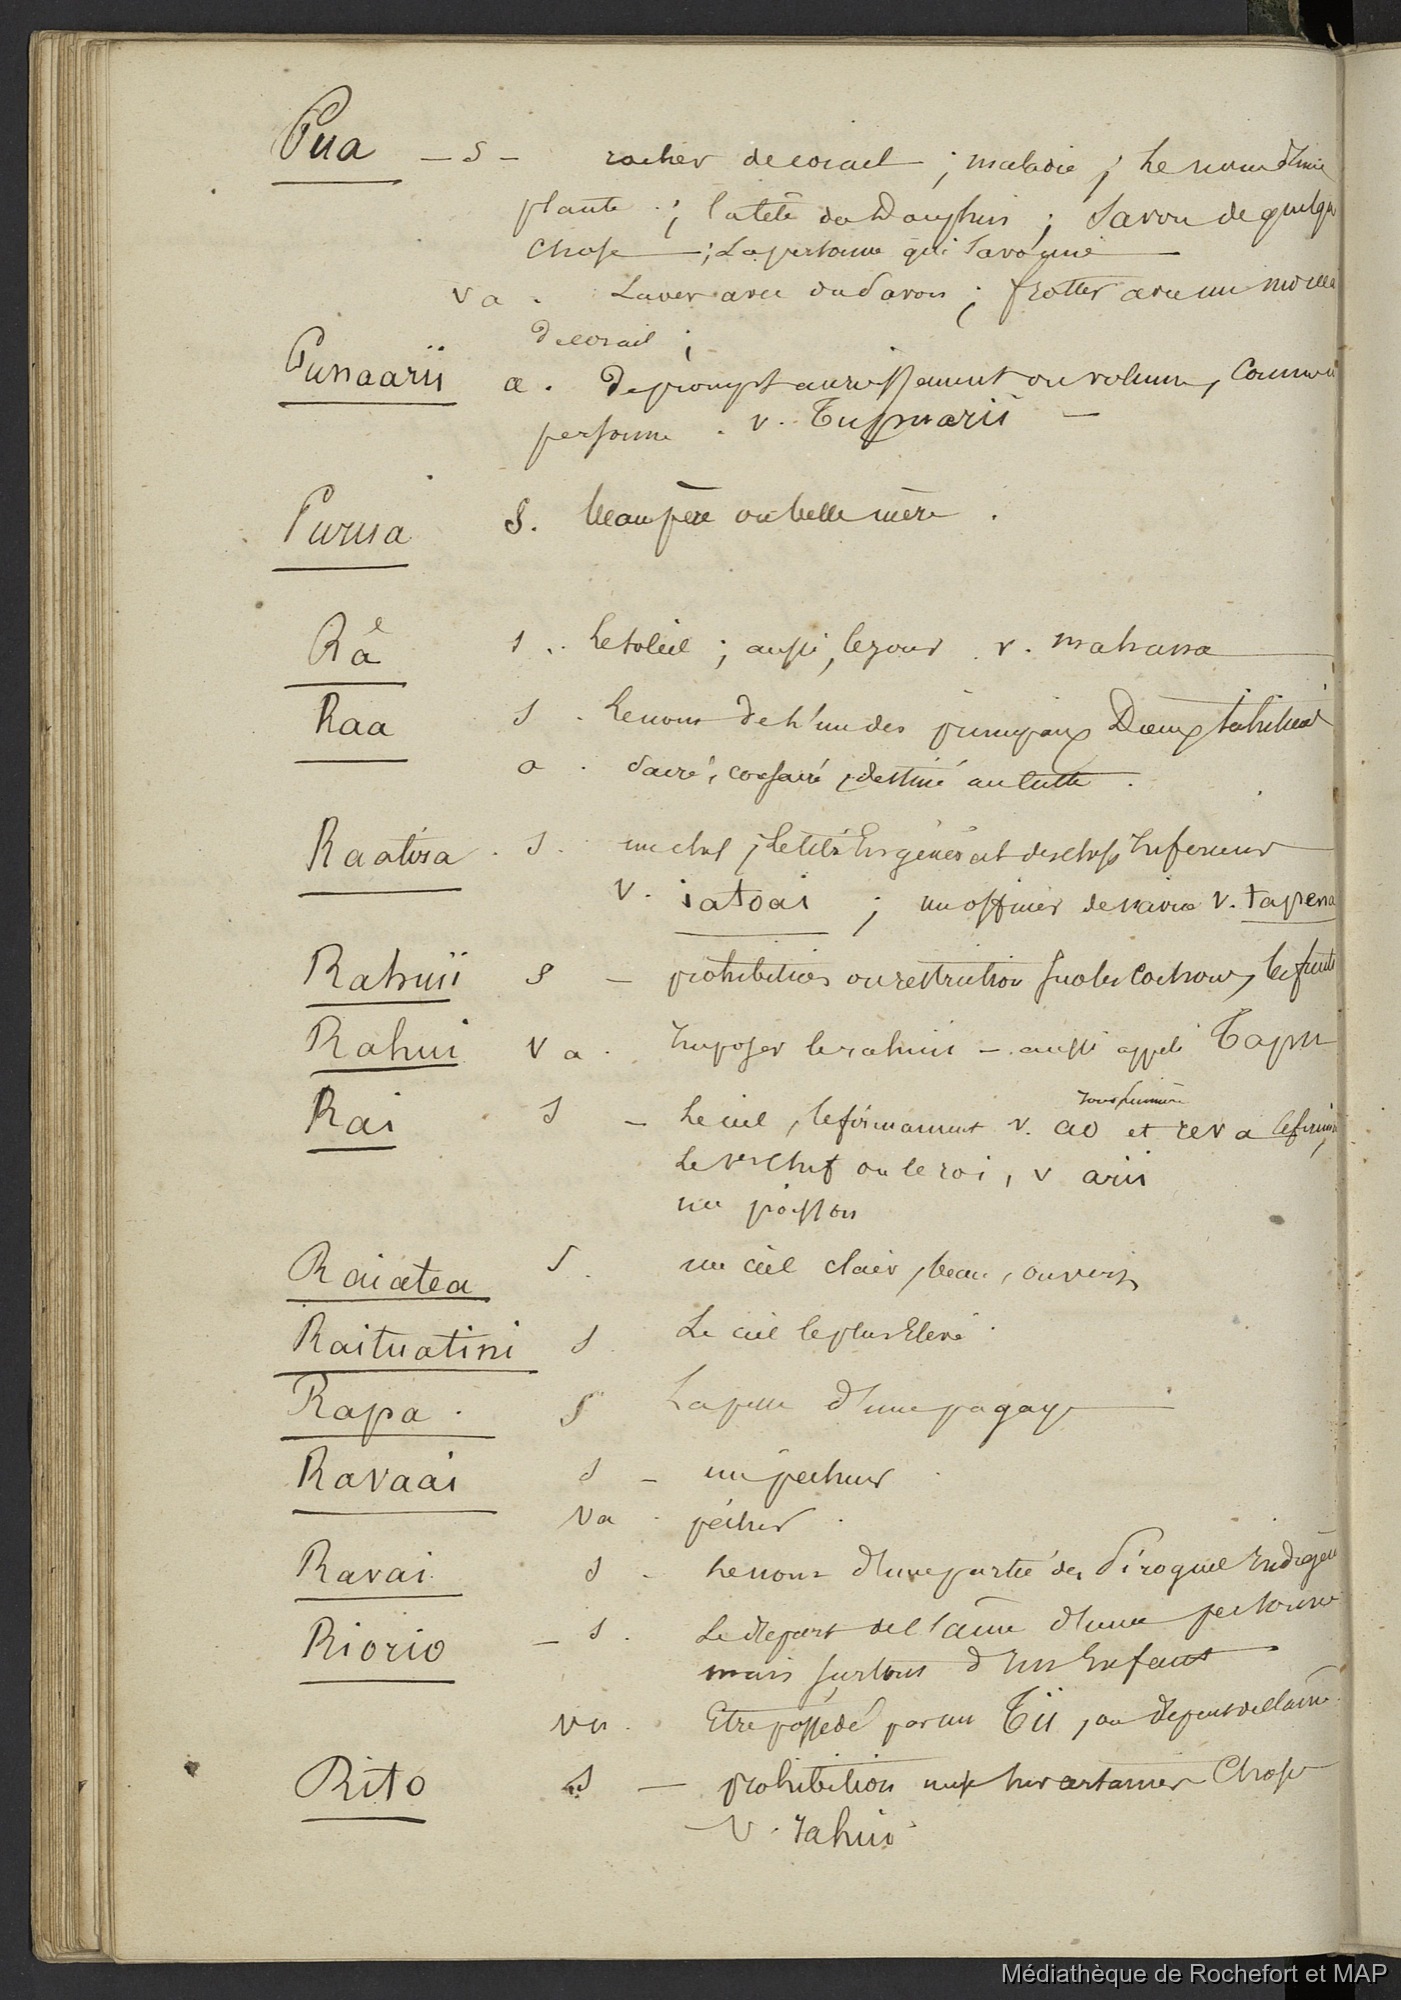 Pua — s — rocher de corail ; maladie ; Le nom d'une
plante ; la tête du Dauphin ; Savon de quelque
chose — ; La personne qui Savonne —
va . Laver avec du Savon ; frotter avec un morceau
de corail ;
Punaarii a . De prompt accroissement ou volume, comme
personne . v. Tupuarii —
Purua s. beau père ou belle mère .
Râ s . Le soleil ; aussi, le jour . v. mahana
Raa s . Le nom de l'un des principaux Dieux
a . Sacré, consacré, destiné au culte .
Raatira . s . un chef ; Le titre En général des chefs Inferieurs
v. iatoai ; un officier de navire v. tapena
Rahuii s — prohibition ou restriction sur les cochons, les fruits
Rahui va . Imposer le rahui — aussi appelé Tapu
Rai s — Le ciel, le firmament v. ao et reva
Le 1er chef ou le roi, v arii
un poisson
Raiatea s . un ciel clair, beau, ouvert
Raituatini s Le ciel le plus Elevé .
Rapa . s La pelle d'une pagaye
Ravaai s — un pêcheur .
va . pêcher .
Ravai s . Le nom d'une partie des Pirogues Indigènes
Riorio — s . Le départ de l'âme d'une personne
mais surtout d'un Enfant
vn . Etre possédé par un Tii, ou départ de l'âme.
Rito s — prohibition mise sur certaines Choses
v. rahui
Médiathèque de Rochefort et MAP